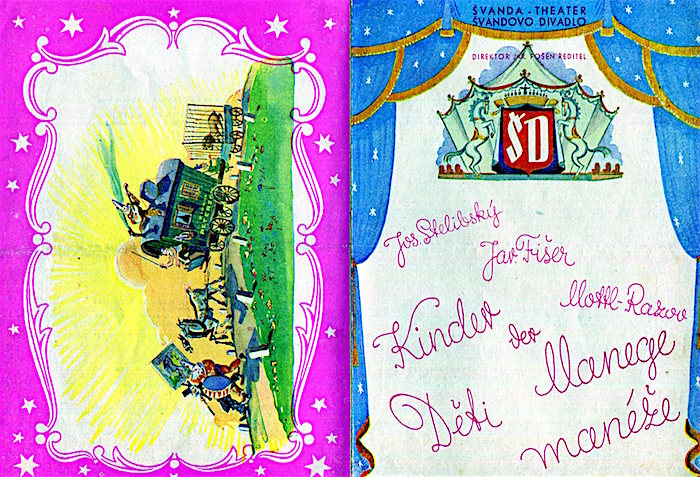 ŠVANDA - THEATER
ŠVANDOVO DIVADLO
DIREKTOR JAR. POSEN ŘEDITEL
ŠD
Jos. Stelibský
Jar Fišer
Mottl-Razov
Kinder der Manege
Děti manéže